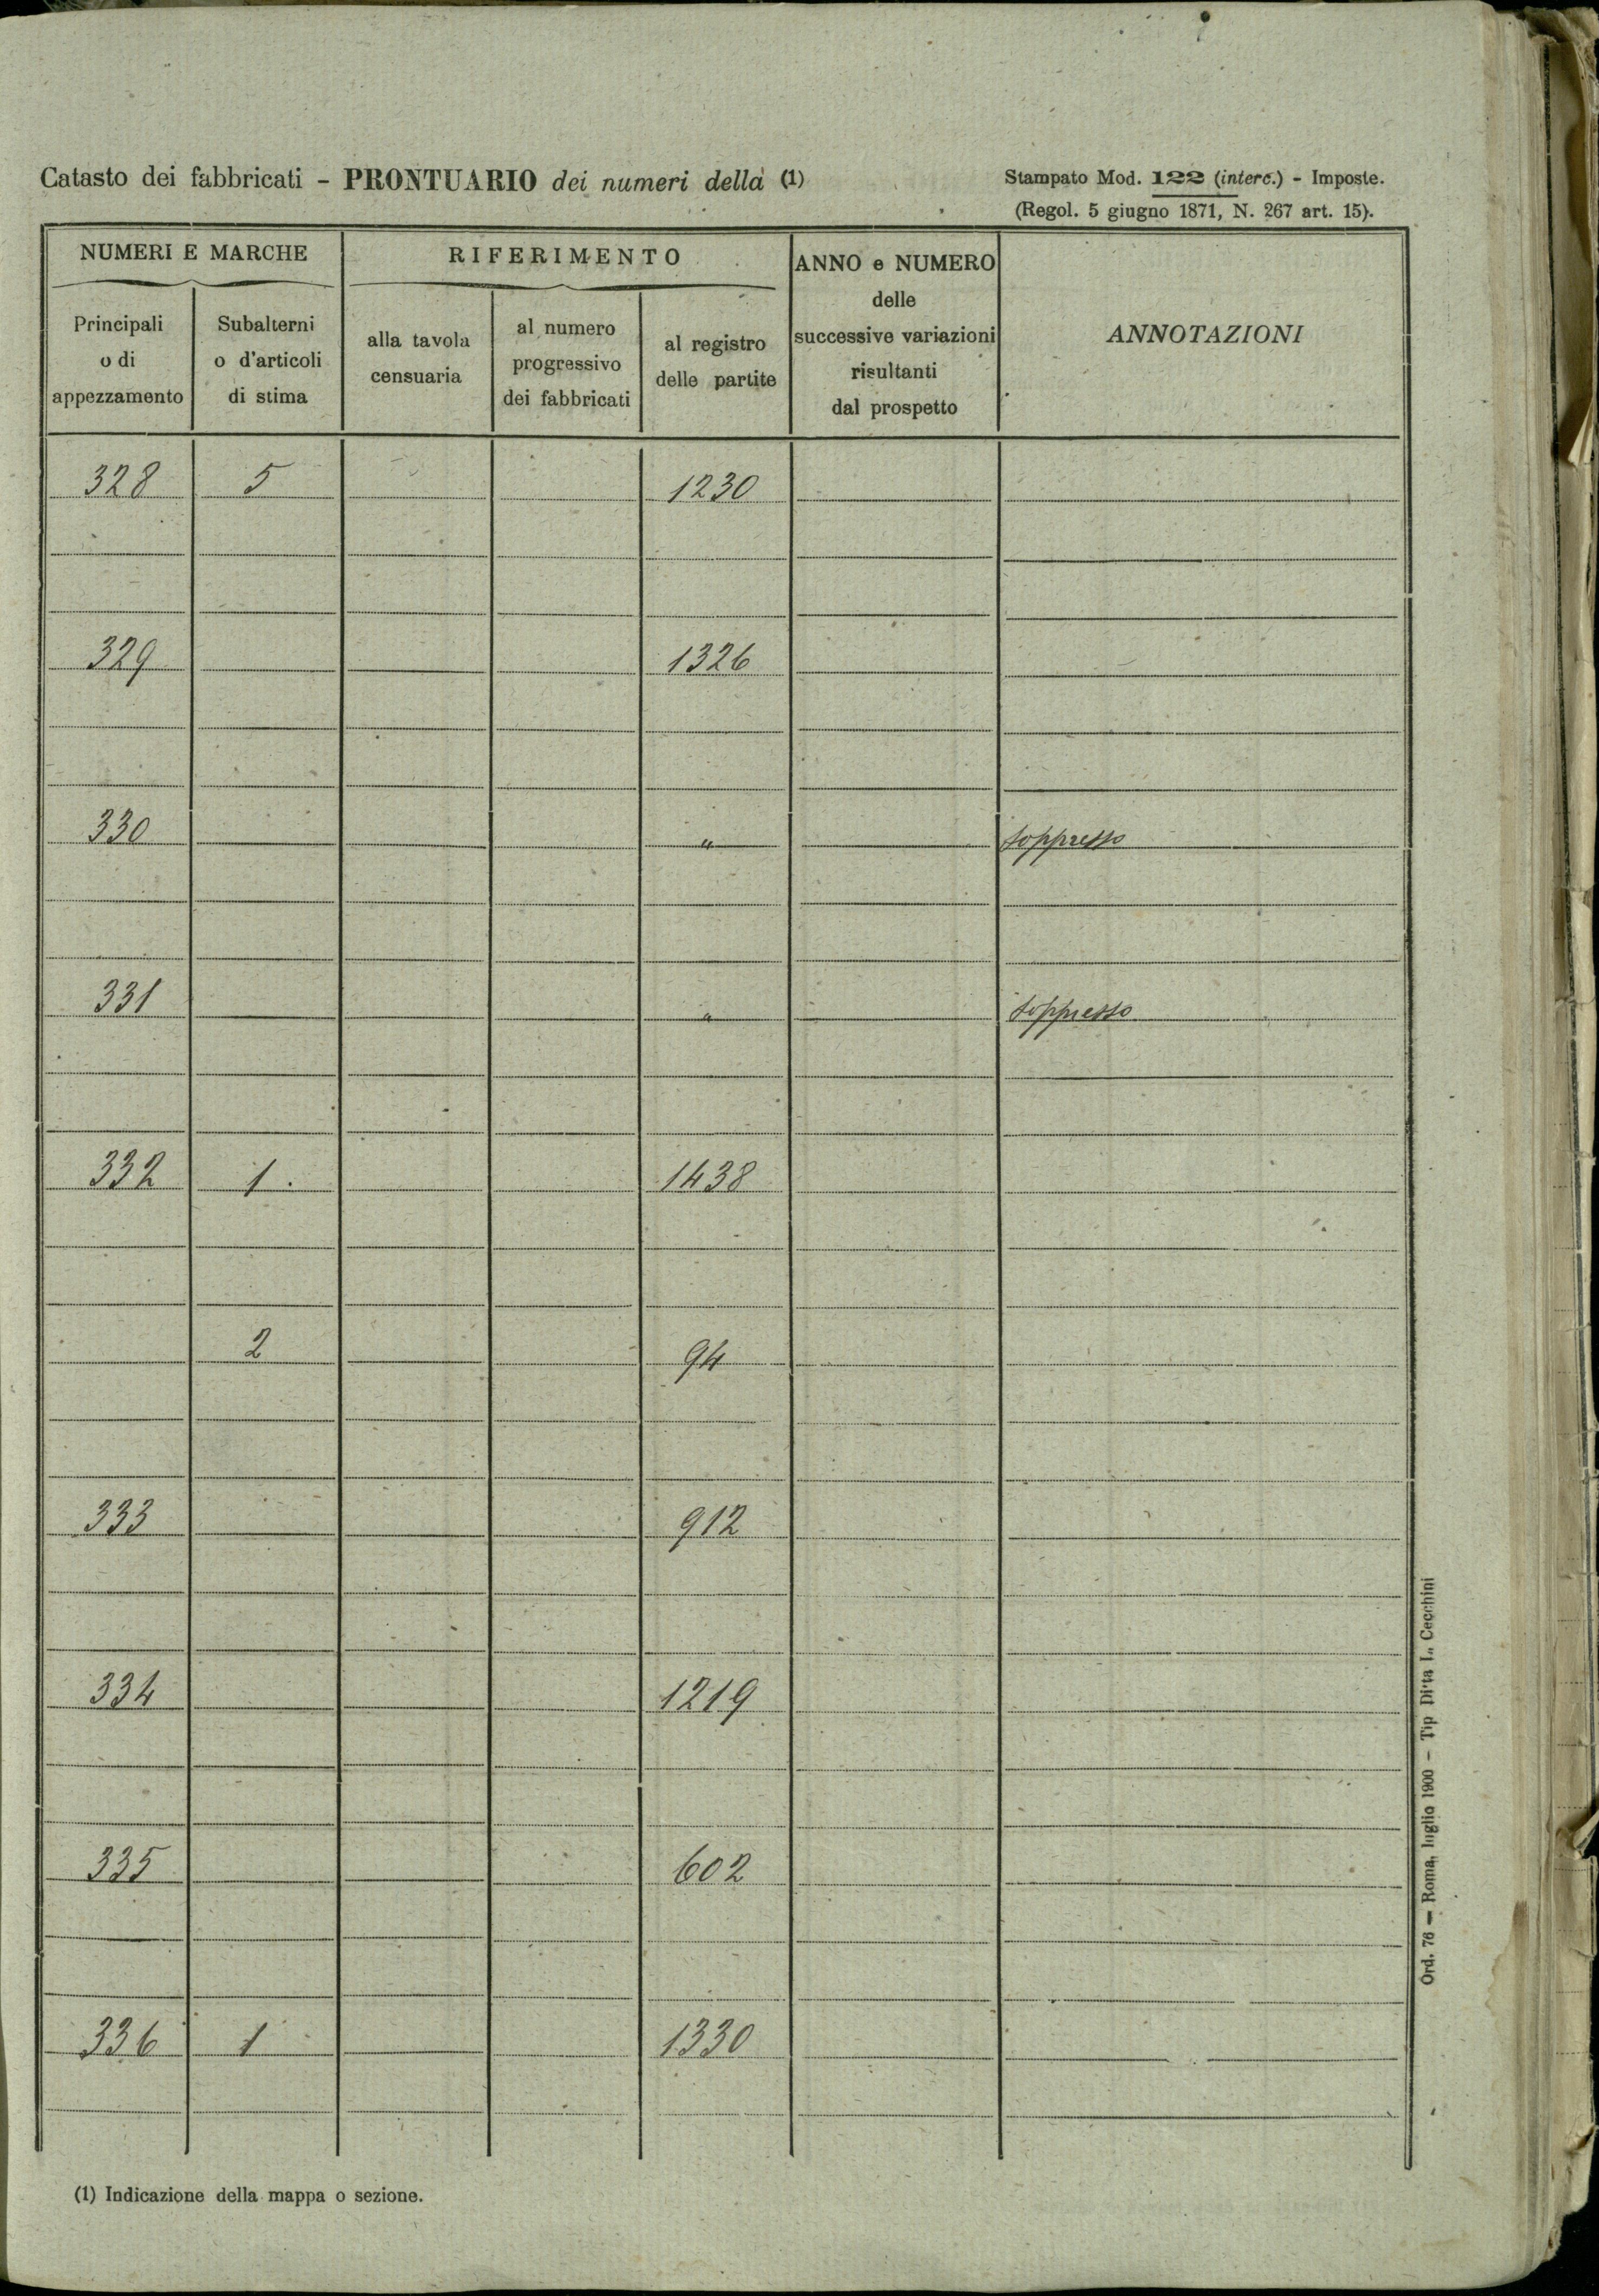 Catasto dei fabbricati - PRONTUARIO dei numeri della (1)
Stampato Mod. 122 (interc.) - Imposte.
(Regol. 5 giugno 1871, N. 267 art. 15).
NUMERI E MARCHE
RIFERIMENTO
ANNO e NUMERO
delle
successive variazioni
risultanti
dal prospetto
ANNOTAZIONI
Principali
o di
appezzamento
Subalterni
o d'articoli
di stima
alla tavola
censuaria
al numero
progressivo
dei fabbricati
al registro
delle partite
328 5 1230
329 1326
330 " soppresso
331 " soppresso
332 1. 1438
2 94
333 912
334 1219
335 602
336 1 1330
(1) Indicazione della mappa o sezione.
Ord. 76 — Roma, luglio 1900 - Tip Ditta L. Cecchini